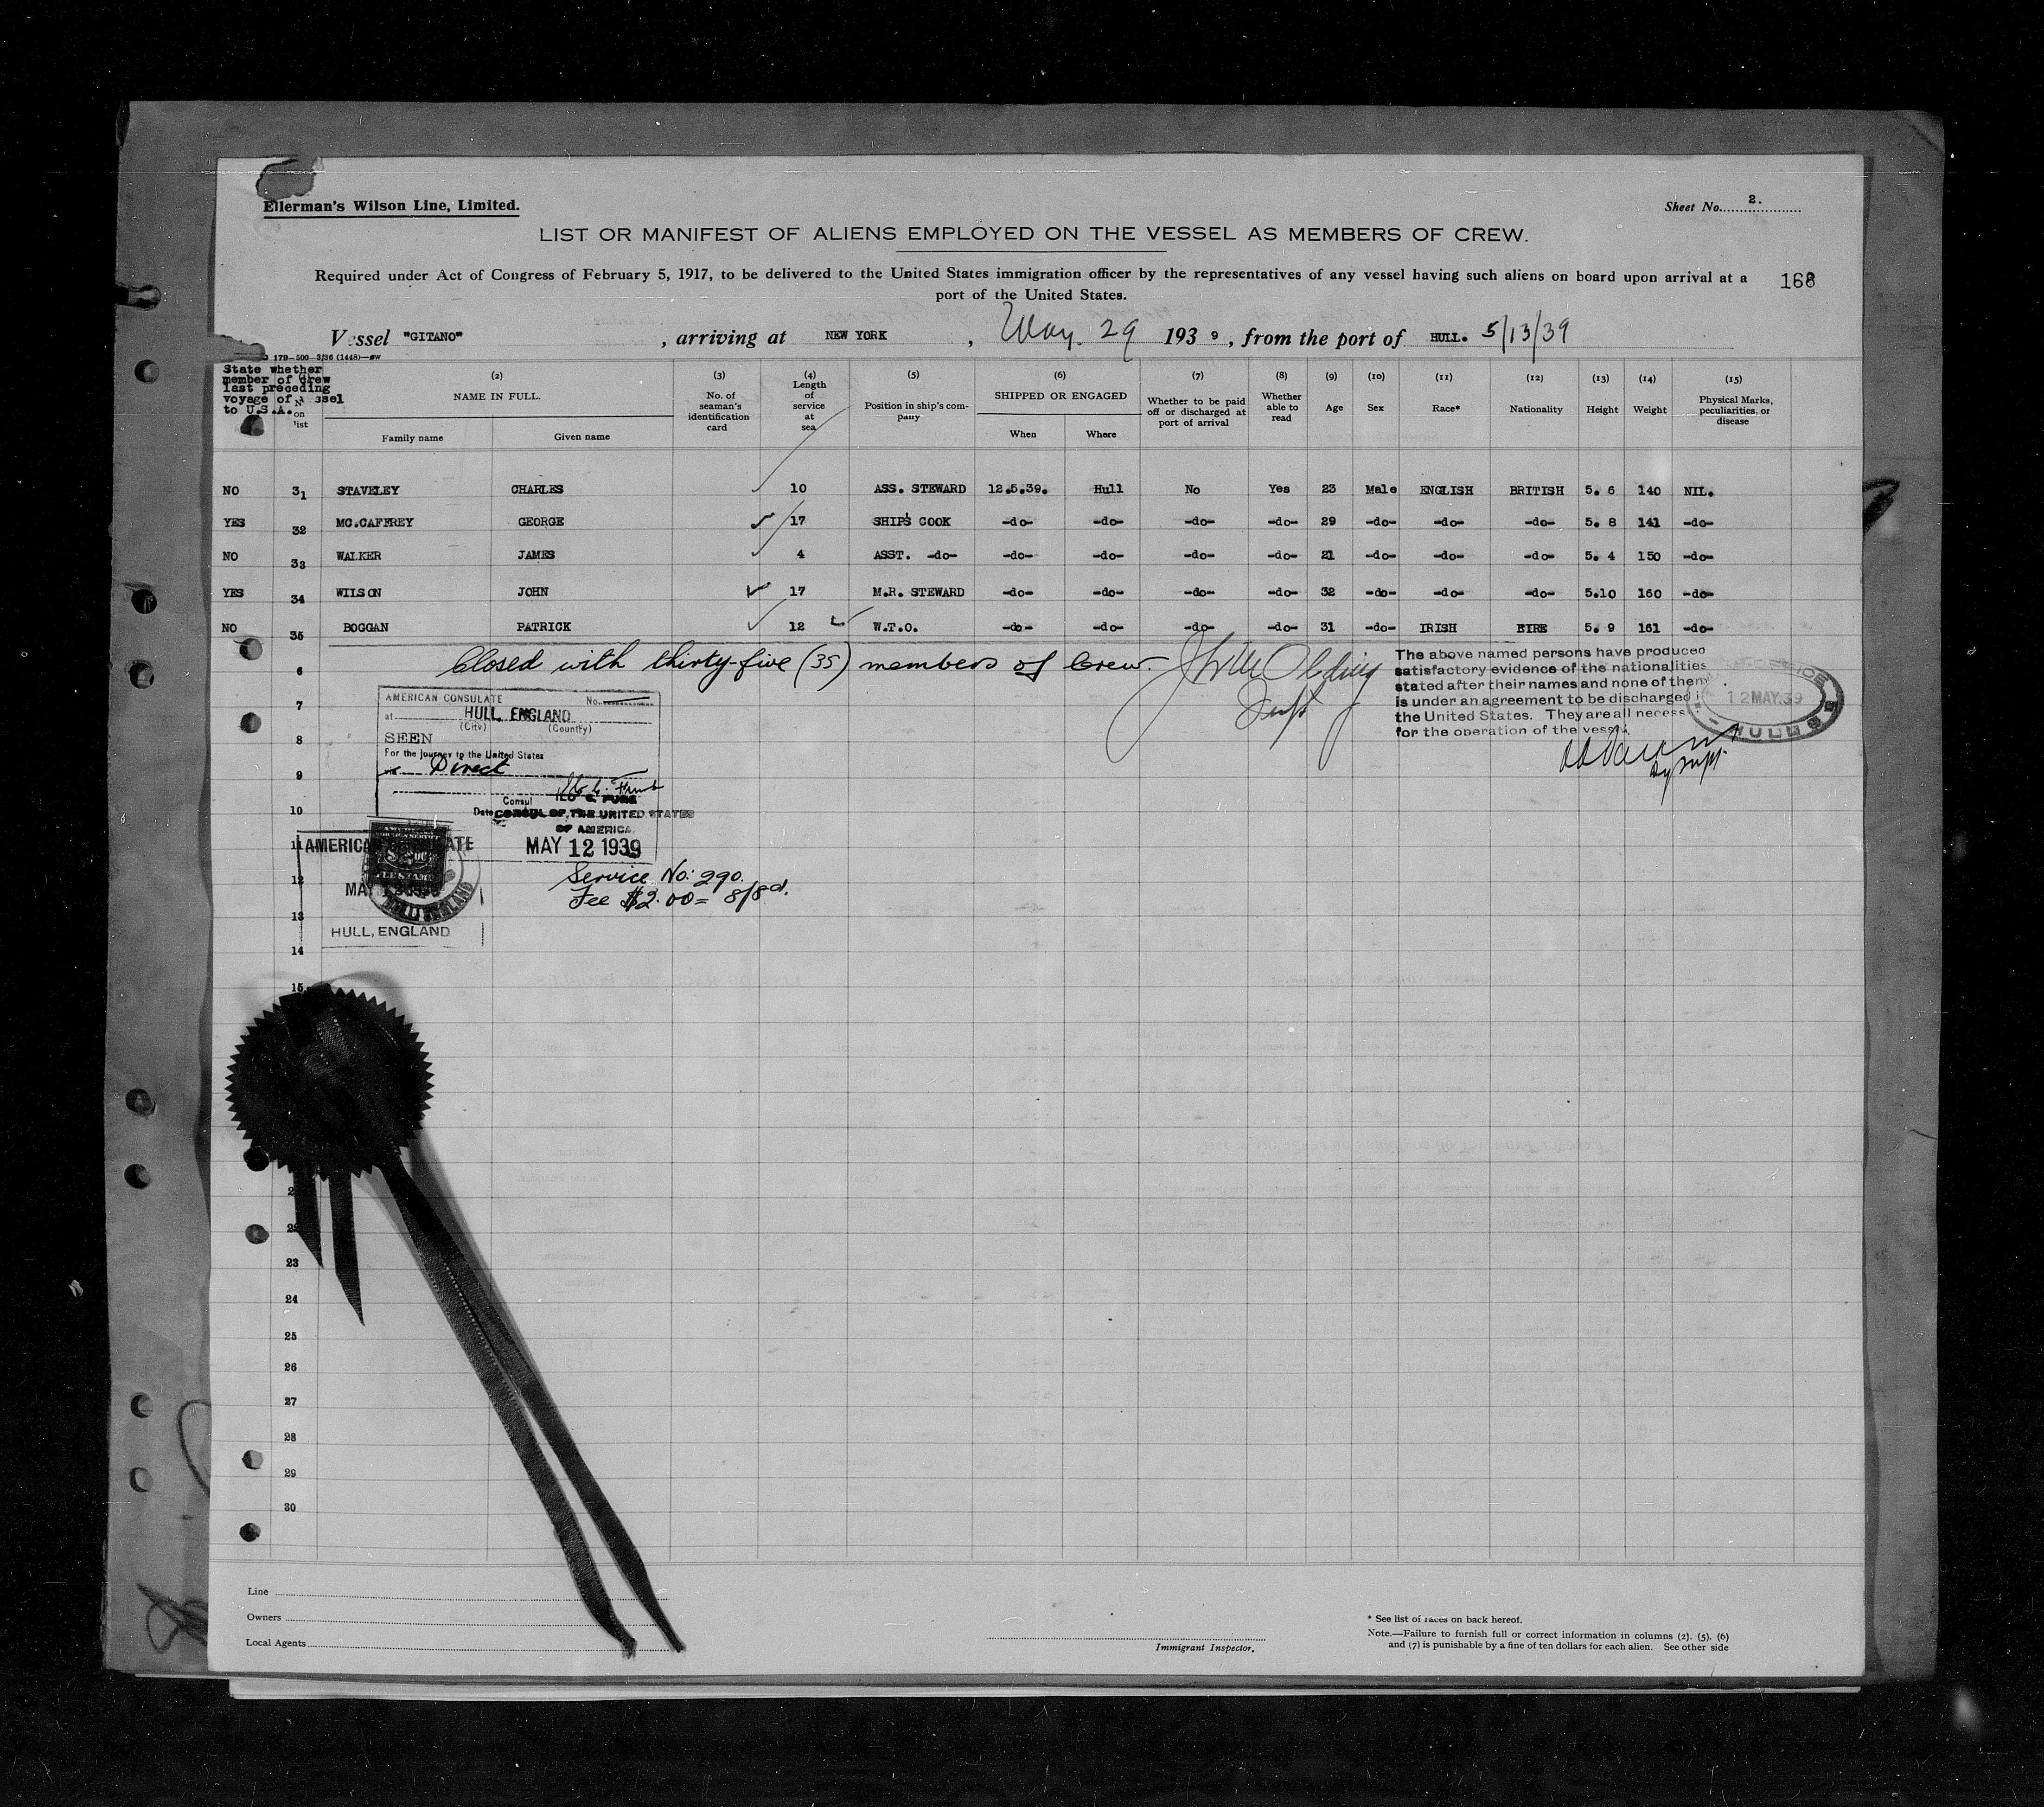 Ellerman's Wilson Line, Limited.
Sheet No. 2.
LIST OR MANIFEST OF ALIENS EMPLOYED ON THE VESSEL AS MEMBERS OF CREW.
Required under Act of Congress of February 5, 1917, to be delivered to the United States immigration officer by the representatives of any vessel having such aliens on board upon arrival at a
port of the United States.
168
Vessel "GITANO", arriving at NEW YORK, May. 29 1939, from the port of HULL. 5/13/39
179-500 3/36 (1448)
State whether
member of crew
last preceding
voyage of vessel
to U.S.A.
on
list
(2) NAME IN FULL.
Family name Given name
(3) No. of seaman's identification card
(4) Length of service at sea
(5) Position in ship's company
(6) SHIPPED OR ENGAGED
When Where
(7) Whether to be paid off or discharged at port of arrival
(8) Whether able to read
(9) Age
(10) Sex
(11) Race*
(12) Nationality
(13) Height
(14) Weight
(15) Physical Marks, peculiarities, or disease
NO 31 STAVELEY CHARLES 10 ASS. STEWARD 12.5.39. Hull No Yes 23 Male ENGLISH BRITISH 5. 6 140 NIL.
YES 32 MC.CAFFREY GEORGE 17 SHIP'S COOK -do- -do- -do- -do- 29 -do- -do- -do- 5. 8 141 -do-
NO 33 WALKER JAMES 4 ASST. -do- -do- -do- -do- -do- 21 -do- -do- -do- 5. 4 150 -do-
YES 34 WILSON JOHN 17 M.R. STEWARD -do- -do- -do- -do- 32 -do- -do- -do- 5.10 160 -do-
NO 35 BOGGAN PATRICK 12 W.T.O. -do- -do- -do- -do- 31 -do- IRISH EIRE 5. 9 161 -do-
Closed with thirty-five (35) members of Crew.
Supt
The above named persons have produced
satisfactory evidence of the nationalities
stated after their names and none of them
is under an agreement to be discharged i
the United States. They are all necess
for the operation of the vessel.
12 MAY.39
HULL
6
7
8
9
10
11
12
13
14
15
AMERICAN CONSULATE No.
at HULL, ENGLAND
(City) (Country)
SEEN
For the journey to the United States
via Direct
Consul
Date CONSUL OF THE UNITED STATES
OF AMERICA
MAY 12 1939
Service No: 290.
Fee $2.00 = 8/8d.
AMERICAN CONSULATE
MAY 12 1939
HULL, ENGLAND
23
24
25
26
27
28
29
30
Line
Owners
Local Agents
Immigrant Inspector.
* See list of races on back hereof.
Note.—Failure to furnish full or correct information in columns (2), (5), (6)
and (7) is punishable by a fine of ten dollars for each alien. See other side